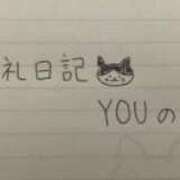 礼日記
YOUの